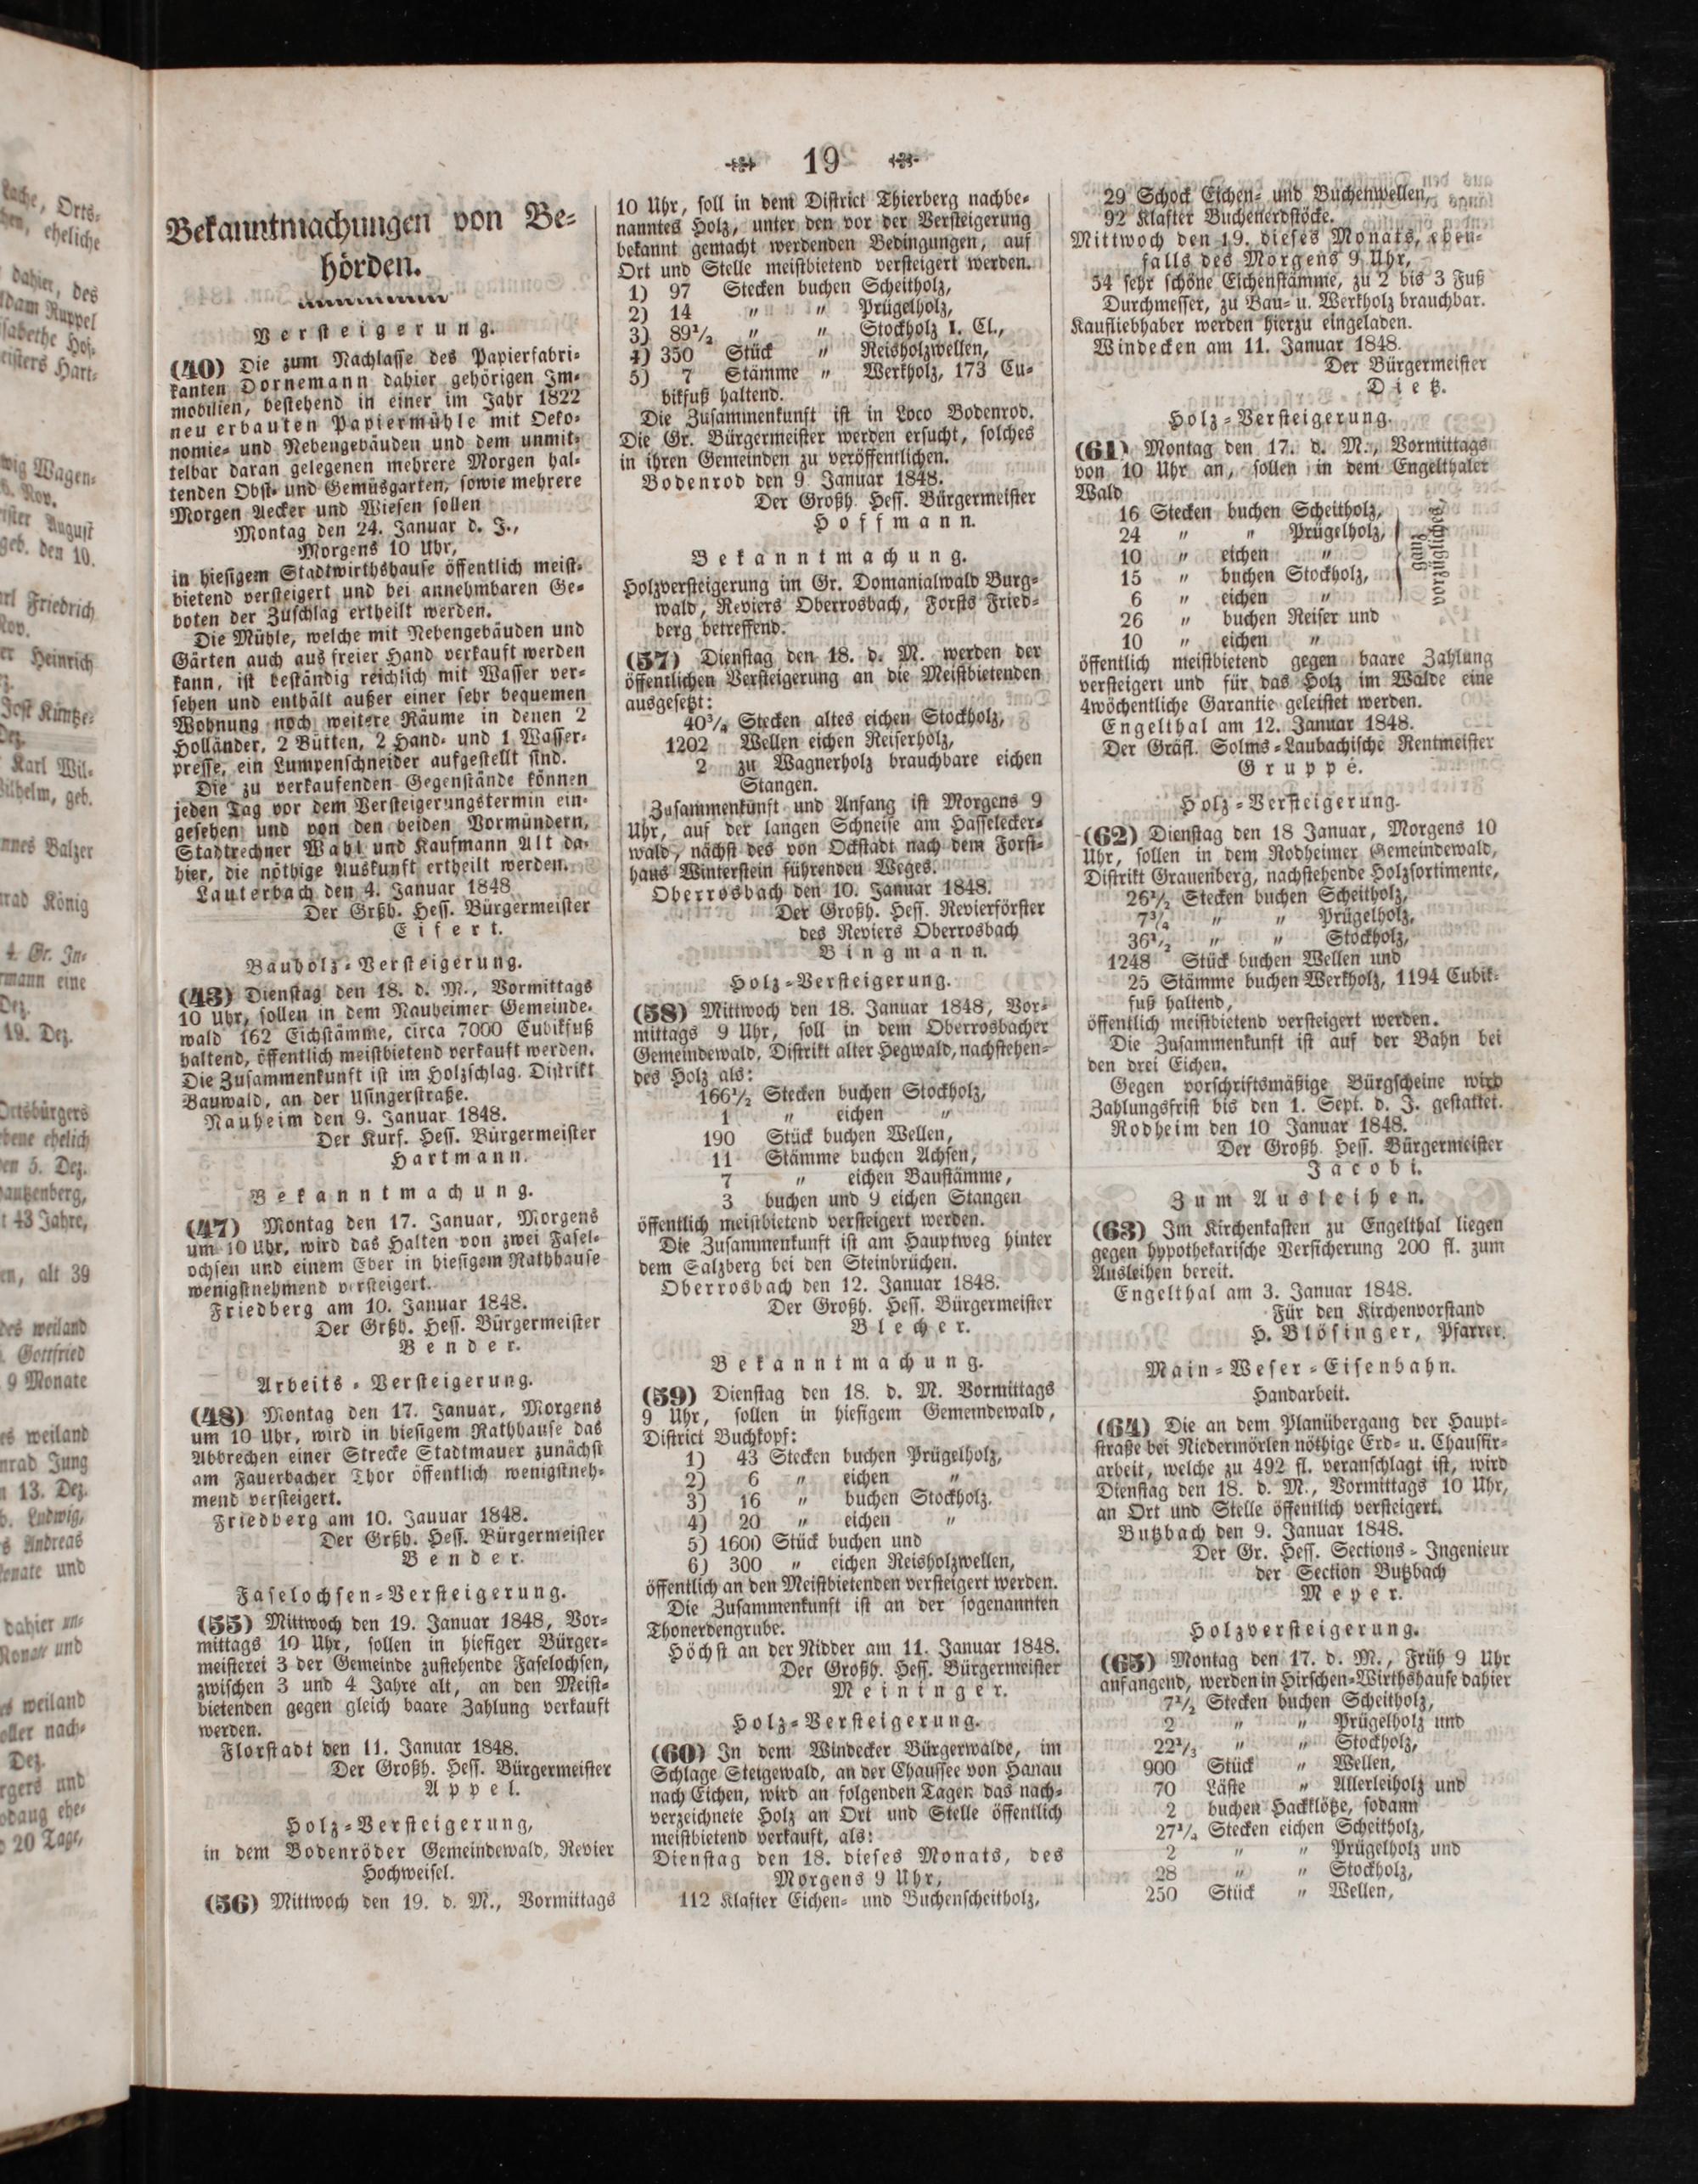 19
Bekanntmachungen von Be-
hörden.
Versteigerung.
(40) Die zum Nachlasse des Papierfabri-
kanten Dornemann dahier gehörigen Im-
mobilien, bestehend in einer im Jahr 1822
neu erbauten Papiermühle mit Oeko-
nomie- und Nebengebäuden und dem unmit-
telbar daran gelegenen mehrere Morgen hal-
tenden Obst- und Gemüsgarten, sowie mehrere
Morgen Aecker und Wiesen sollen
Montag den 24. Januar d. J.,
Morgens 10 Uhr,
in hiesigem Stadtwirthshause öffentlich meist-
bietend versteigert und bei annehmbaren Ge-
boten der Zuschlag ertheilt werden.
Die Mühle, welche mit Nebengebäuden und
Gärten auch aus freier Hand verkauft werden
kann, ist beständig reichlich mit Wasser ver-
sehen und enthält außer einer sehr bequemen
Wohnung noch weitere Räume in denen 2
Holländer, 2 Bütten, 2 Hand- und 1 Wasser-
presse, ein Lumpenschneider aufgestellt sind.
Die zu verkaufenden Gegenstände können
jeden Tag vor dem Versteigerungstermin ein-
gesehen und von den beiden Vormündern,
Stadtrechner Wahl und Kaufmann Alt da-
hier, die nöthige Auskunft ertheilt werden.
Lauterbach den 4. Januar 1848
Der Grßh. Hess. Bürgermeister
Eifert.
Bauholz-Versteigerung.
(43) Dienstag den 18. d. M., Vormittags
10 Uhr, sollen in dem Nauheimer Gemeinde-
wald 162 Eichstämme, circa 7000 Cubikfuß
haltend, öffentlich meistbietend verkauft werden.
Die Zusammenkunft ist im Holzschlag. Distrikt
Bauwald, an der Usingerstraße.
Nauheim den 9. Januar 1848.
Der Kurf. Hess. Bürgermeister
Hartmann.
Bekanntmachung.
(47) Montag den 17. Januar, Morgens
um 10 Uhr, wird das Halten von zwei Fasel-
ochsen und einem Eber in hiesigem Rathhause
wenigstnehmend versteigert.
Friedberg am 10. Januar 1848.
Der Grßh. Hess. Bürgermeister
Bender.
Arbeits-Versteigerung.
(48) Montag den 17. Januar, Morgens
um 10 Uhr, wird in hiesigem Rathhause das
Abbrechen einer Strecke Stadtmauer zunächst
am Fauerbacher Thor öffentlich wenigstneh-
mend versteigert.
Friedberg am 10. Jauuar 1848.
Der Grßh. Hess. Bürgermeister
Bender.
Faselochsen-Versteigerung.
(55) Mittwoch den 19. Januar 1848, Vor-
mittags 10 Uhr, sollen in hiesiger Bürger-
meisterei 3 der Gemeinde zustehende Faselochsen,
zwischen 3 und 4 Jahre alt, an den Meist-
bietenden gegen gleich baare Zahlung verkauft
werden.
Florstadt den 11. Januar 1848.
Der Großh. Hess. Bürgermeister
Appel.
Holz-Versteigerung,
in dem Bodenröder Gemeindewald, Revier
Hochweisel.
(56) Mittwoch den 19. d. M., Vormittags
10 Uhr, soll in dem District Thierberg nachbe-
nanntes Holz, unter den vor der Versteigerung
bekannt gemacht werdenden Bedingungen, auf
Ort und Stelle meistbietend versteigert werden.
1) 97 Stecken buchen Scheitholz,
2) 14 " " Prügelholz,
3) 89½ " " Stockholz I. Cl.,
4) 350 Stück " Reisholzwellen,
5) 7 Stämme " Werkholz, 173 Cu-
bikfuß haltend.
Die Zusammenkunft ist in Loco Bodenrod.
Die Gr. Bürgermeister werden ersucht, solches
in ihren Gemeinden zu veröffentlichen.
Bodenrod den 9. Januar 1848.
Der Großh. Hess. Bürgermeister
Hoffmann.
Bekanntmachung.
Holzversteigerung im Gr. Domanialwald Burg-
wald, Reviers Oberrosbach, Forsts Fried-
berg betreffend.
(57) Dienstag den 18. d. M. werden der
öffentlichen Versteigerung an die Meistbietenden
ausgesetzt:
40¾ Stecken altes eichen Stockholz,
1202 Wellen eichen Reiserholz,
2 zu Wagnerholz brauchbare eichen
Stangen.
Zusammenkunft und Anfang ist Morgens 9
Uhr, auf der langen Schneise am Hasselecker-
wald, nächst des von Ockstadt nach dem Forst-
haus Winterstein führenden Weges.
Oberrosbach den 10. Januar 1848.
Der Großh. Hess. Revierförster
des Reviers Oberrosbach
Bingmann.
Holz-Versteigerung.
(58) Mittwoch den 18. Januar 1848, Vor-
mittags 9 Uhr, soll in dem Oberrosbacher
Gemeindewald, Distrikt alter Hegwald, nachstehen-
des Holz als:
166½ Stecken buchen Stockholz,
1 " eichen "
190 Stück buchen Wellen,
11 Stämme buchen Achsen,
7 " eichen Baustämme,
3 buchen und 9 eichen Stangen
öffentlich meistbietend versteigert werden.
Die Zusammenkunft ist am Hauptweg hinter
dem Salzberg bei den Steinbrüchen.
Oberrosbach den 12. Januar 1848.
Der Großh. Hess. Bürgermeister
Blecher.
Bekanntmachung.
(59) Dienstag den 18. d. M. Vormittags
9 Uhr, sollen in hiesigem Gemeindewald,
District Buchkopf:
1) 43 Stecken buchen Prügelholz,
2) 6 " eichen "
3) 16 " buchen Stockholz,
4) 20 " eichen "
5) 1600 Stück buchen und
6) 300 " eichen Reisholzwellen,
öffentlich an den Meistbietenden versteigert werden.
Die Zusammenkunft ist an der sogenannten
Thonerdengrube.
Höchst an der Nidder am 11. Januar 1848.
Der Großh. Hess. Bürgermeister
Meininger.
Holz-Versteigerung.
(60) In dem Windecker Bürgerwalde, im
Schlage Steigewald, an der Chaussee von Hanau
nach Eichen, wird an folgenden Tagen das nach-
verzeichnete Holz an Ort und Stelle öffentlich
meistbietend verkauft, als:
Dienstag den 18. dieses Monats, des
Morgens 9 Uhr,
112 Klafter Eichen- und Buchenscheitholz,
29 Schock Eichen- und Buchenwellen,
92 Klafter Buchenerdstöcke.
Mittwoch den 19. dieses Monats, eben-
falls des Morgens 9 Uhr,
54 sehr schöne Eichenstämme, zu 2 bis 3 Fuß
Durchmesser, zu Bau- u. Werkholz brauchbar.
Kaufliebhaber werden hierzu eingeladen.
Windecken am 11. Januar 1848.
Der Bürgermeister
Dietz.
Holz-Versteigerung.
(61) Montag den 17. d. M., Vormittags
von 10 Uhr an, sollen in dem Engelthaler
Wald
16 Stecken buchen Scheitholz,
24 " " Prügelholz,
10 " eichen "
15 " buchen Stockholz,
6 " eichen "
ganz
vorzügliches
26 " buchen Reiser und
10 " eichen "
öffentlich meistbietend gegen baare Zahlung
versteigert und für das Holz im Walde eine
4wöchentliche Garantie geleistet werden.
Engelthal am 12. Januar 1848.
Der Gräfl. Solms-Laubachische Rentmeister
Gruppé.
Holz-Versteigerung.
(62) Dienstag den 18 Januar, Morgens 10
Uhr, sollen in dem Rodheimer Gemeindewald,
Distrikt Grauenberg, nachstehende Holzsortimente,
26½ Stecken buchen Scheitholz,
7¾ " " Prügelholz,
36½ " " Stockholz,
1248 Stück buchen Wellen und
25 Stämme buchen Werkholz, 1194 Cubik-
fuß haltend,
öffentlich meistbietend versteigert werden.
Die Zusammenkunft ist auf der Bahn bei
den drei Eichen.
Gegen vorschriftsmäßige Bürgscheine wird
Zahlungsfrist bis den 1. Sept. d. J. gestattet.
Rodheim den 10 Januar 1848.
Der Großh. Hess. Bürgermeister
Jacobi.
Zum Ausleihen.
(63) Im Kirchenkasten zu Engelthal liegen
gegen hypothekarische Versicherung 200 fl. zum
Ausleihen bereit.
Engelthal am 3. Januar 1848.
Für den Kirchenvorstand
H. Blösinger, Pfarrer.
Main-Weser-Eisenbahn.
Handarbeit.
(64) Die an dem Planübergang der Haupt-
straße bei Niedermörlen nöthige Erd- u. Chaussir-
arbeit, welche zu 492 fl. veranschlagt ist, wird
Dienstag den 18. d. M., Vormittags 10 Uhr,
an Ort und Stelle öffentlich versteigert.
Butzbach den 9. Januar 1848.
Der Gr. Hess. Sections-Ingenieur
der Section Butzbach
Meyer.
Holzversteigerung.
(65) Montag den 17. d. M., Früh 9 Uhr
anfangend, werden in Hirschen-Wirthshause dahier
7½ Stecken buchen Scheitholz,
2 " " Prügelholz und
22⅓ " " Stockholz,
900 Stück " Wellen,
70 Läste " Allerleiholz und
2 buchen Hackklötze, sodann
27¼ Stecken eichen Scheitholz,
2 " " Prügelholz und
28 " " Stockholz,
250 Stück " Wellen,